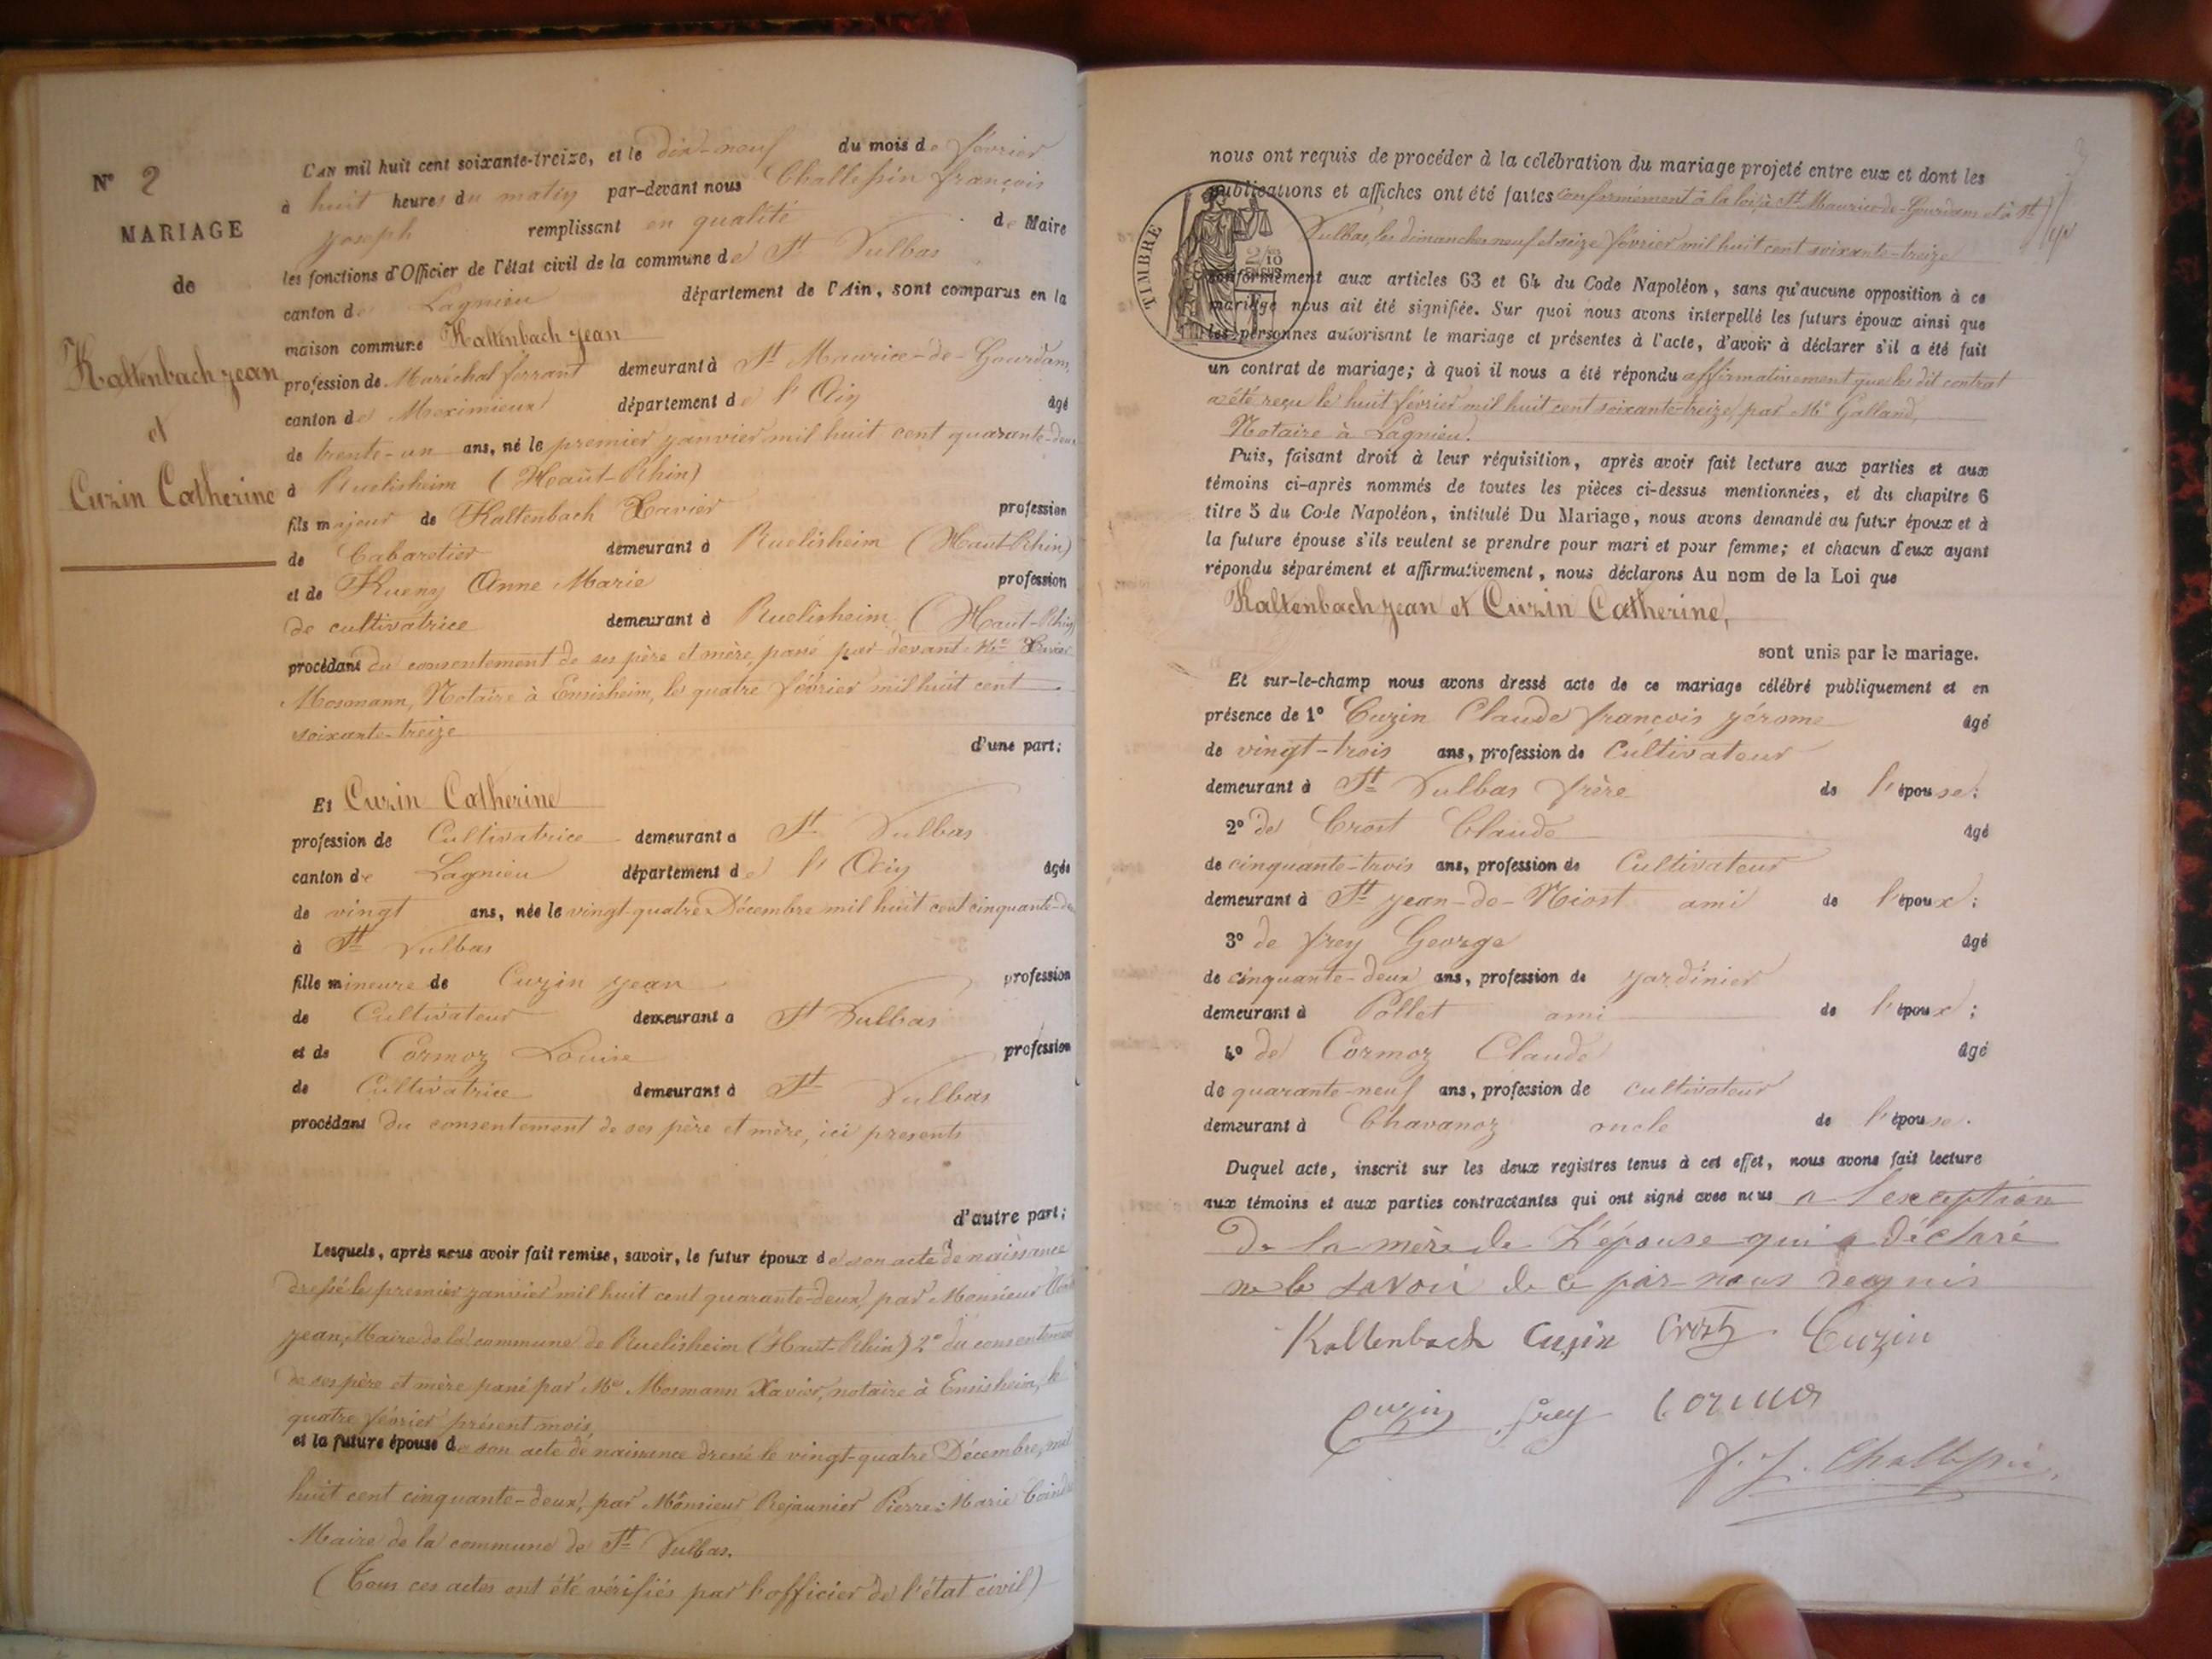 N° 2
MARIAGE
de
Kaltenbach Jean
et
Cuzin Catherine
L'AN mil huit cent soixante-treize, et le dix-neuf du mois de février
à huit heures du matin par-devant nous Challessin françois
Joseph remplissant en qualité de Maire
les fonctions d'Officier de l'état civil de la commune de St Vulbas
canton de Lagnieu département de l'Ain, sont comparus en la
maison commune Kaltenbach Jean
profession de Maréchal ferrant demeurant à St Maurice-de-Gourdans,
canton de Meximieux département de l'Ain âgé
de trente-un ans, né le premier janvier mil huit cent quarante-deux
à Ruelisheim (Haut-Rhin)
fils majeur de Kaltenbach Xavier profession
de Cabaretier demeurant à Ruelisheim (Haut-Rhin)
et de Rueny Anne Marie profession
de cultivatrice demeurant à Ruelisheim (Haut-Rhin)
procédant du consentement de ses père et mère, passé par devant Me Xavier
Mosmann, Notaire à Ensisheim, le quatre février mil huit cent
soixante-treize
d'une part;
Et Cuzin Catherine
profession de Cultivatrice demeurant à St Vulbas
canton de Lagnieu département de l'Ain âgée
de vingt ans, née le vingt-quatre Décembre mil huit cent cinquante-de
à St Vulbas
fille mineure de Cuzin Jean profession
de Cultivateur demeurant à St Vulbas
et de Cormoz Louise profession
de Cultivatrice demeurant à St Vulbas
procédant du consentement de ses père et mère, ici présents
d'autre part;
Lesquels, après nous avoir fait remise, savoir, le futur époux de son acte de naissance
dressé le premier janvier mil huit cent quarante-deux, par Monsieur
Jean, Maire de la commune de Ruelisheim (Haut-Rhin) 2° du consentement
de ses père et mère passé par Me Mosmann Xavier, notaire à Ensisheim, le
quatre février présent mois,
et la future épouse de son acte de naissance dressé le vingt-quatre Décembre, mil
huit cent cinquante-deux, par Monsieur Rejaunier Pierre-Marie
Maire de la commune de St Vulbas.
(Tous ces actes ont été vérifiés par l'officier de l'état civil)
nous ont requis de procéder à la célébration du mariage projeté entre eux et dont les
publications et affiches ont été faites conformément à la loi, à St Maurice-de-Gourdans et à St
Vulbas, les dimanches neuf et seize février mil huit cent soixante-treize
TIMBRE
2/10
EN SUS
conformément aux articles 63 et 64 du Code Napoléon, sans qu'aucune opposition à ce
mariage nous ait été signifiée. Sur quoi nous avons interpellé les futurs époux ainsi que
les personnes autorisant le mariage et présentes à l'acte, d'avoir à déclarer s'il a été fait
un contrat de mariage; à quoi il nous a été répondu affirmativement que le dit contrat
a été reçu le huit février mil huit cent soixante-treize, par Me Galland,
Notaire à Lagnieu.
Puis, faisant droit à leur réquisition, après avoir fait lecture aux parties et aux
témoins ci-après nommés de toutes les pièces ci-dessus mentionnées, et du chapitre 6
titre 5 du Code Napoléon, intitulé Du Mariage, nous avons demandé au futur époux et à
la future épouse s'ils veulent se prendre pour mari et pour femme; et chacun d'eux ayant
répondu séparément et affirmativement, nous déclarons Au nom de la Loi que
Kaltenbach Jean et Cuzin Catherine,
sont unis par le mariage.
Et sur-le-champ nous avons dressé acte de ce mariage célébré publiquement et en
présence de 1° Cuzin Claude françois Jérome âgé
de vingt-trois ans, profession de Cultivateur
demeurant à St Vulbas frère de l'épouse;
2° de Crost Claude âgé
de cinquante-trois ans, profession de Cultivateur
demeurant à St Jean-de-Niost ami de l'époux;
3° de frey George âgé
de cinquante-deux ans, profession de jardinier
demeurant à Pollet ami de l'époux;
4° de Cormoz Claude âgé
de quarante-neuf ans, profession de cultivateur
demeurant à Chavanoz oncle de l'épouse.
Duquel acte, inscrit sur les deux registres tenus à cet effet, nous avons fait lecture
aux témoins et aux parties contractantes qui ont signé avec nous a l'exception
De la mère de L'épouse qui a déclaré
ne le savoir de ce par nous requis
Kaltenbach Cuzin Crost Cuzin
Cuzin frey Cormoz
f. J. Challessin